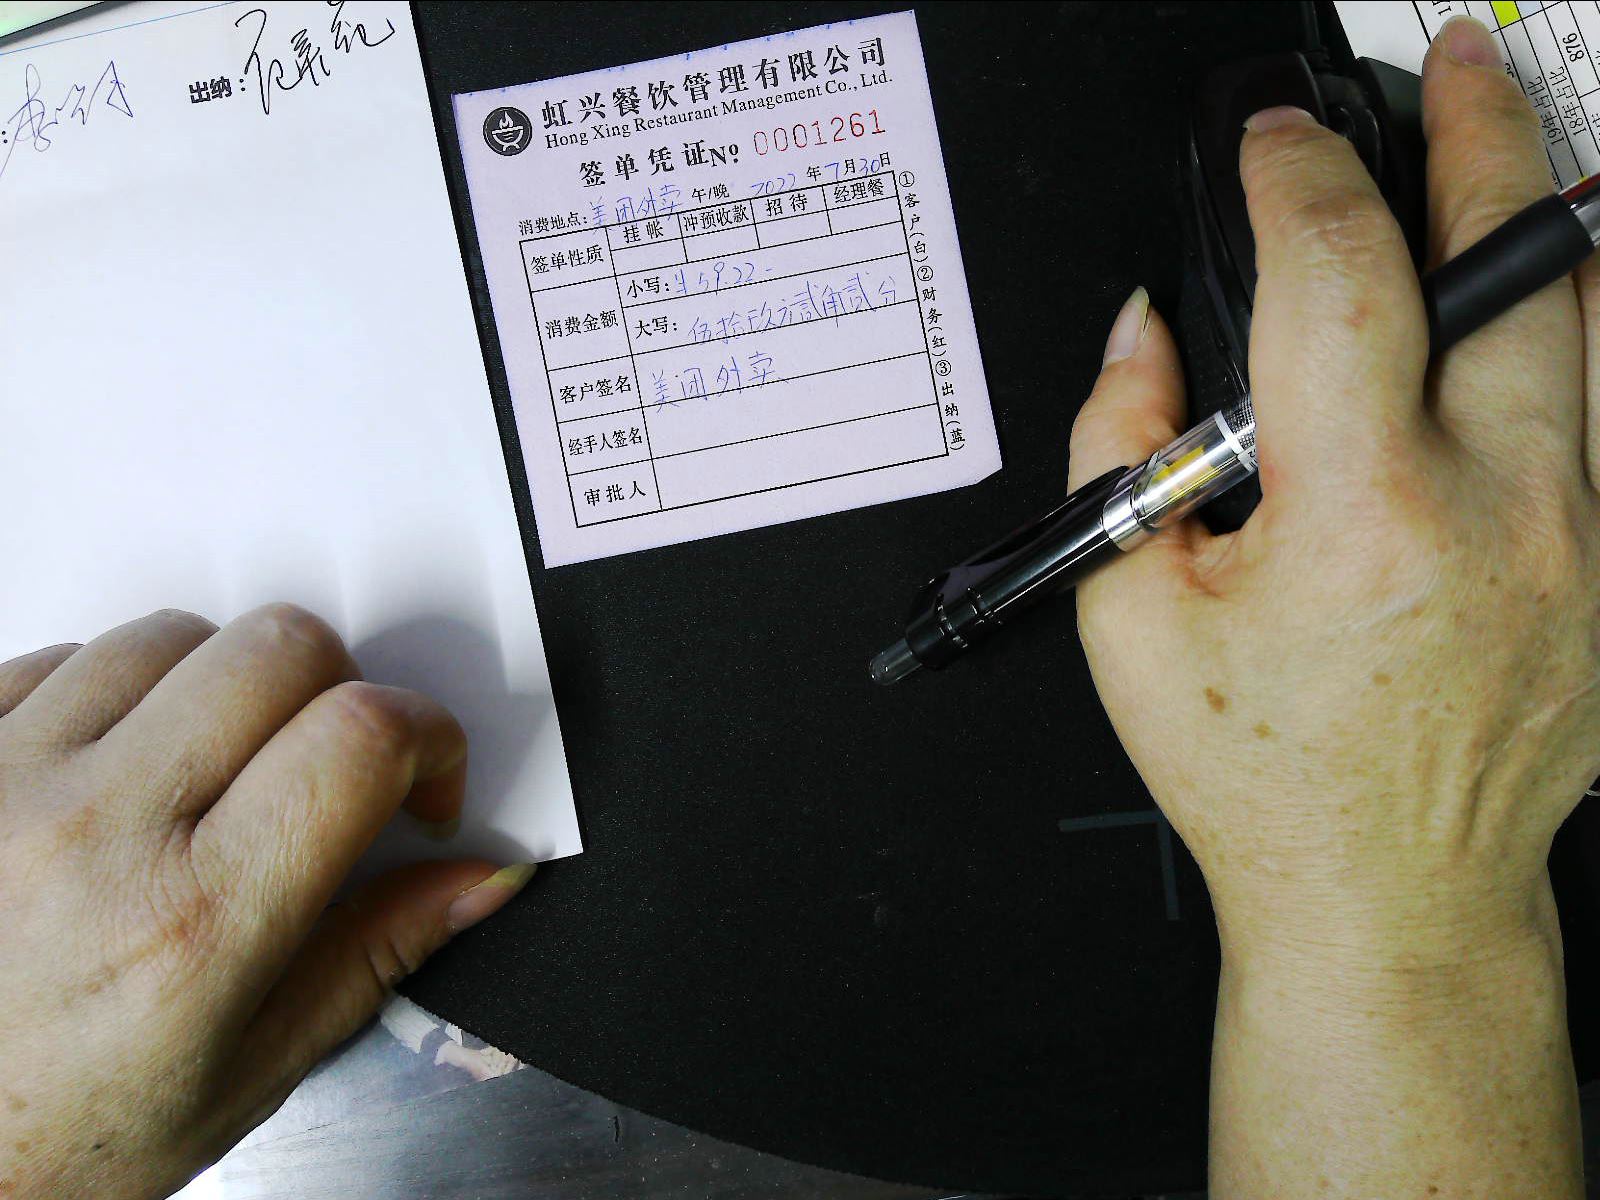 出纳：
虹兴餐饮管理有限公司
Hong Xing Restaurant Management Co., Ltd.
签单凭证 № 0001261
消费地点：美团外卖 午/晚 2022年7月30日
签单性质 挂帐 冲预收款 招待 经理餐
消费金额 小写：¥59.22-
大写：伍拾玖元贰角贰分
客户签名 美团外卖
经手人签名
审批人
①客户(白)②财务(红)③出纳(蓝)
19年占比
18年占比
876